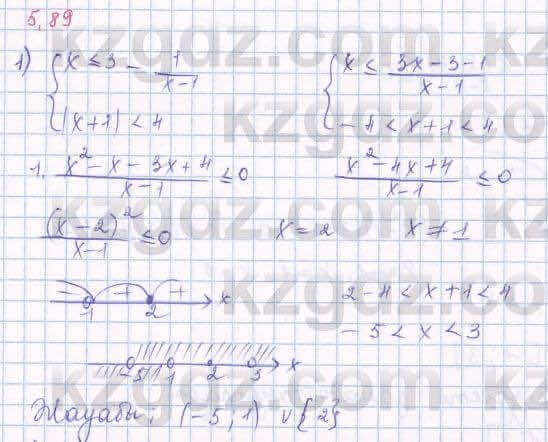 5.89
1) { x ≤ 3 - 1/(x-1)    { x ≤ (3x-3-1)/(x-1)
|x+1| < 4    -4 < x+1 < 4
1. (x²-x-3x+4)/(x-1) ≤ 0    (x²-4x+4)/(x-1) ≤ 0
(x-2)²/(x-1) ≤ 0    x = 2    x ≠ 1
- + + 1 2 x    2 -4 < x+1 < 4
-5 < x < 3
-5 1 2 3 x
Жауабы: (-5; 1) ∪ {2}
kzgdz.com